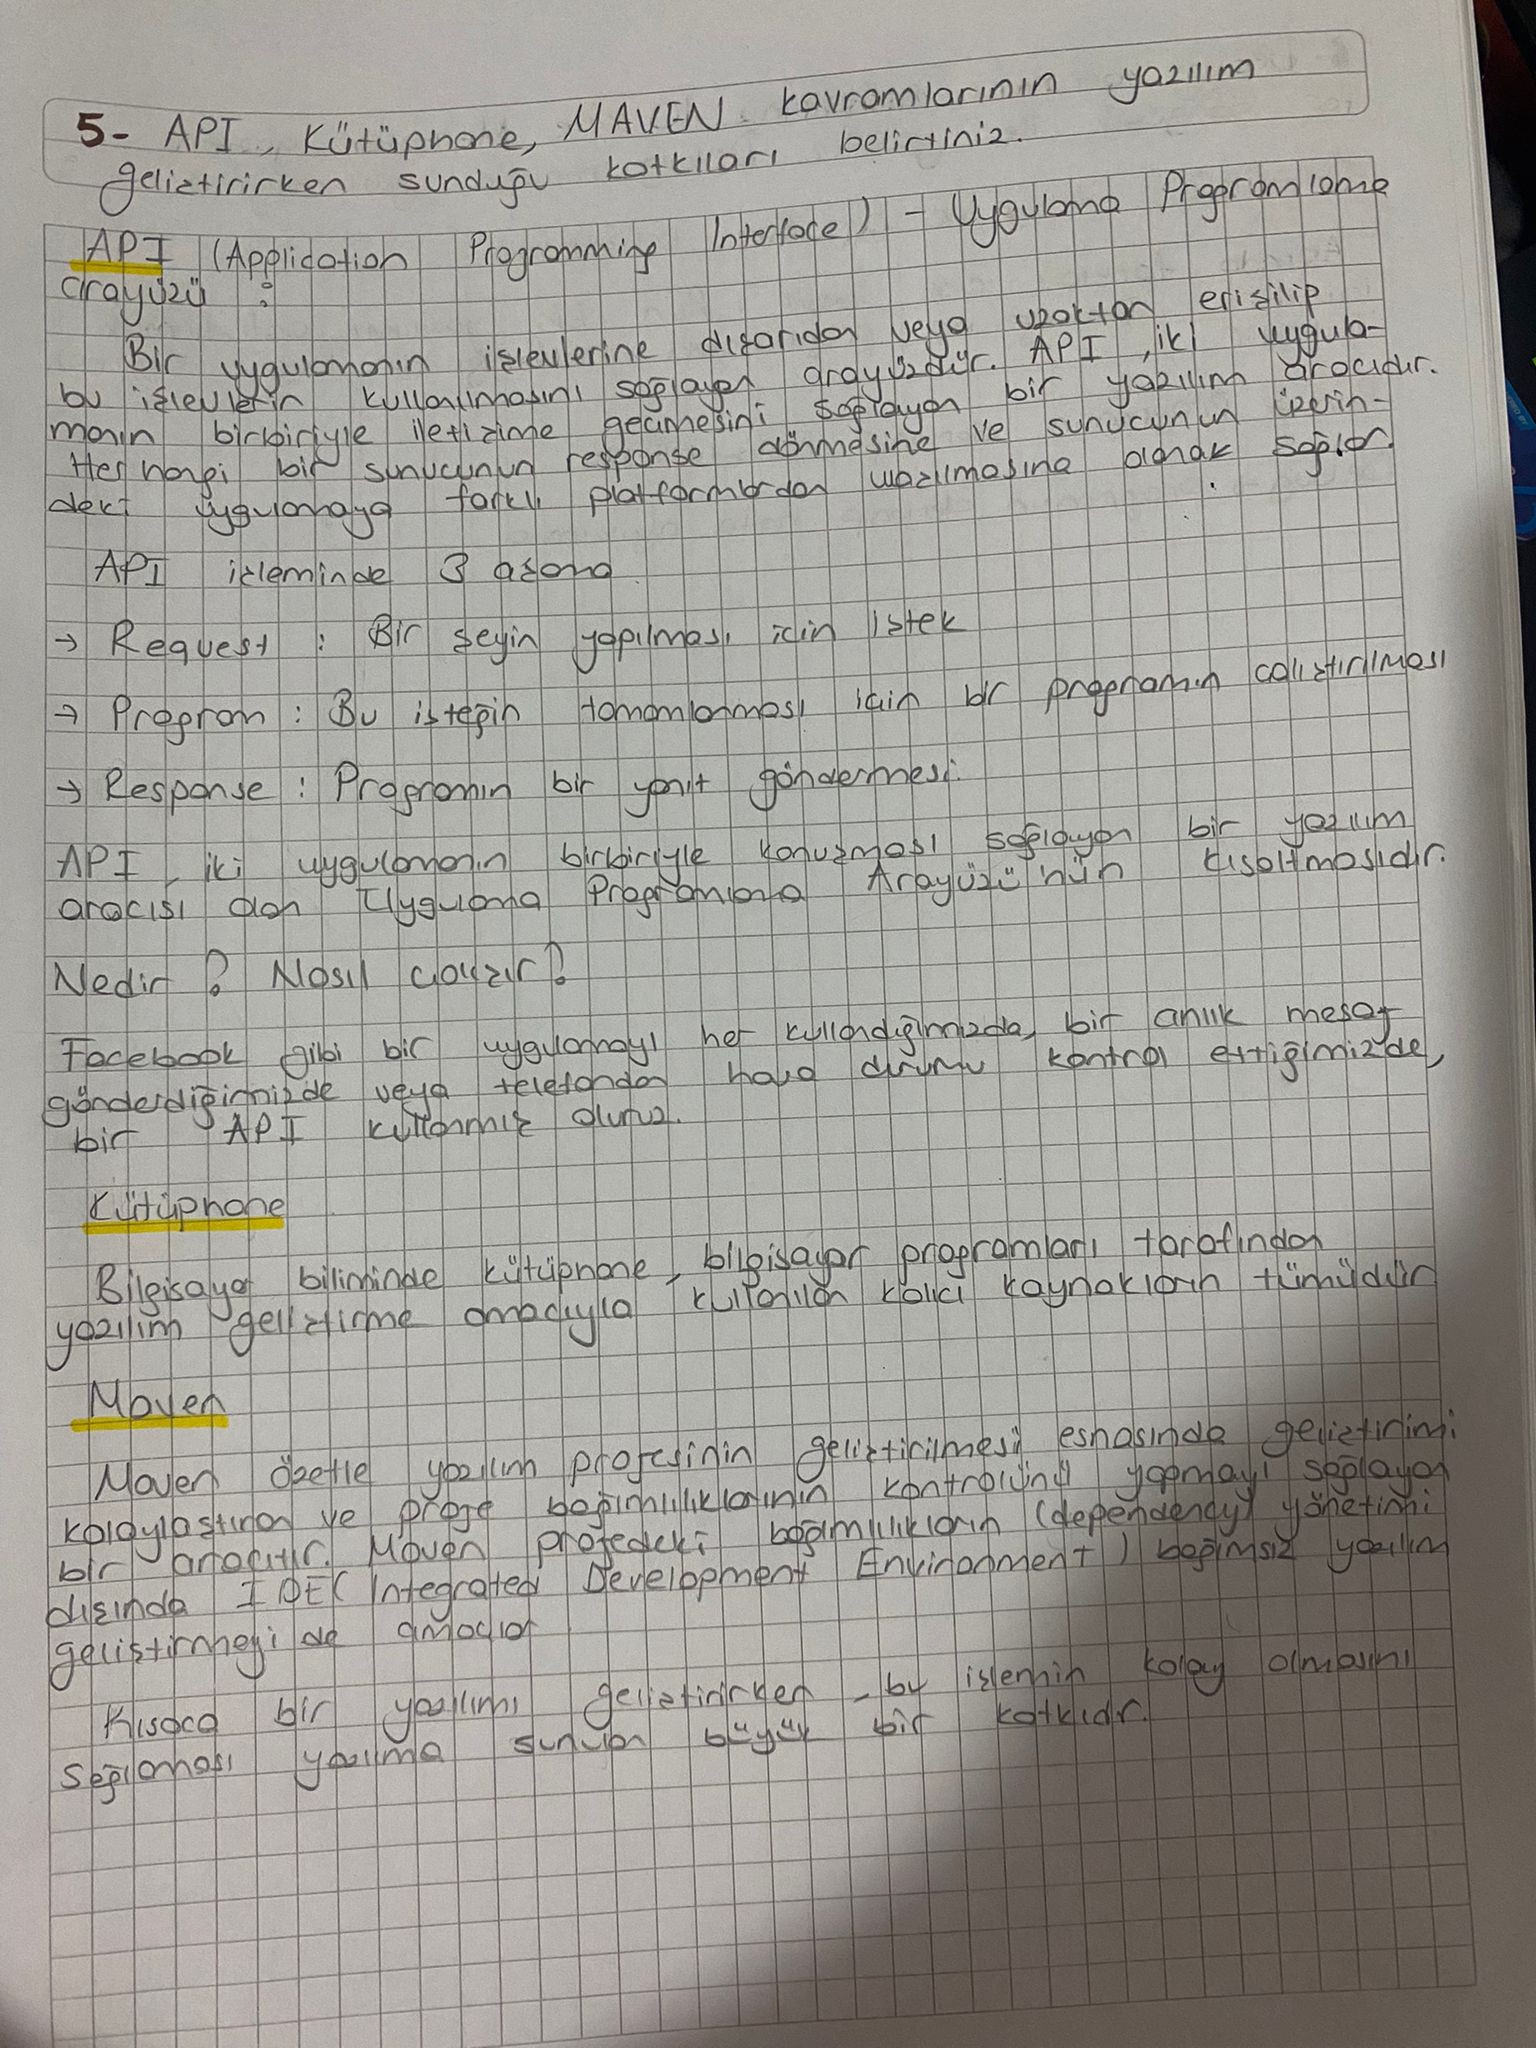 5- API, Kütüphane, MAVEN kavramlarının yazılım
geliştirirken sunduğu katkıları belirtiniz.
API (Application Programming Interface) - Uygulama Programlama
arayüzü :
Bir uygulamanın işlevlerine dışarıdan veya uzaktan erişilip
bu işlevlerin kullanılmasını sağlayan arayüzdür. API, iki uygula-
manın birbiriyle iletişime geçmesini sağlayan bir yazılım aracıdır.
Her hangi bir sunucunun response dönmesine ve sunucunun üzerin-
deki uygulamaya farklı platformlardan ulaşılmasına olanak sağlar.
API işleminde 3 aşama
→ Request : Bir şeyin yapılması için istek
→ Program : Bu isteğin tamamlanması için bir programın çalıştırılması
→ Response : Programın bir yanıt göndermesi.
API, iki uygulamanın birbiriyle konuşması sağlayan bir yazılım
aracısı olan Uygulama Programlama Arayüzü'nün kısaltmasıdır.
Nedir? Nasıl çalışır?
Facebook gibi bir uygulamayı her kullandığımızda, bir anlık mesaj
gönderdiğimizde veya telefondan hava durumu kontrol ettiğimizde,
bir API kullanmış oluruz.
Kütüphane
Bilgisayar biliminde kütüphane, bilgisayar programları tarafından
yazılım geliştirme amacıyla kullanılan kalıcı kaynakların tümüdür
Maven
Maven özetle yazılım projesinin geliştirilmesi esnasında geliştirimi
kolaylaştıran ve proje bağımlılıklarının kontrolünü yapmayı sağlayan
bir araçtır. Maven projedeki bağımlılıkların (dependency) yönetimi
dışında IDE( Integrated Development Environment) bağımsız yazılım
geliştirmeyi de amaçlar
Kısaca bir yazılımı geliştirirken, bu işlemin kolay olmasını
sağlaması yazılıma sunulan büyük bir katkıdır.